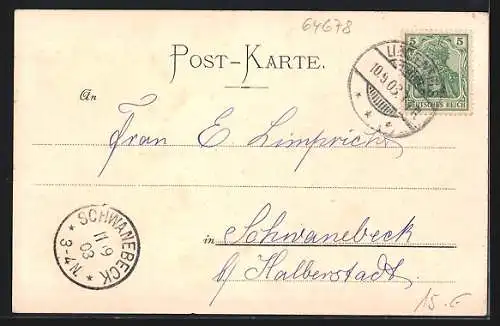 64678
5 5
DEUTSCHES REICH
10.9.03
POST-KARTE.
An
Frau E. Limpricht
SCHWANEBECK
11/9
03
3-4N
in Schwanebeck
b/ Halberstadt
15.-€